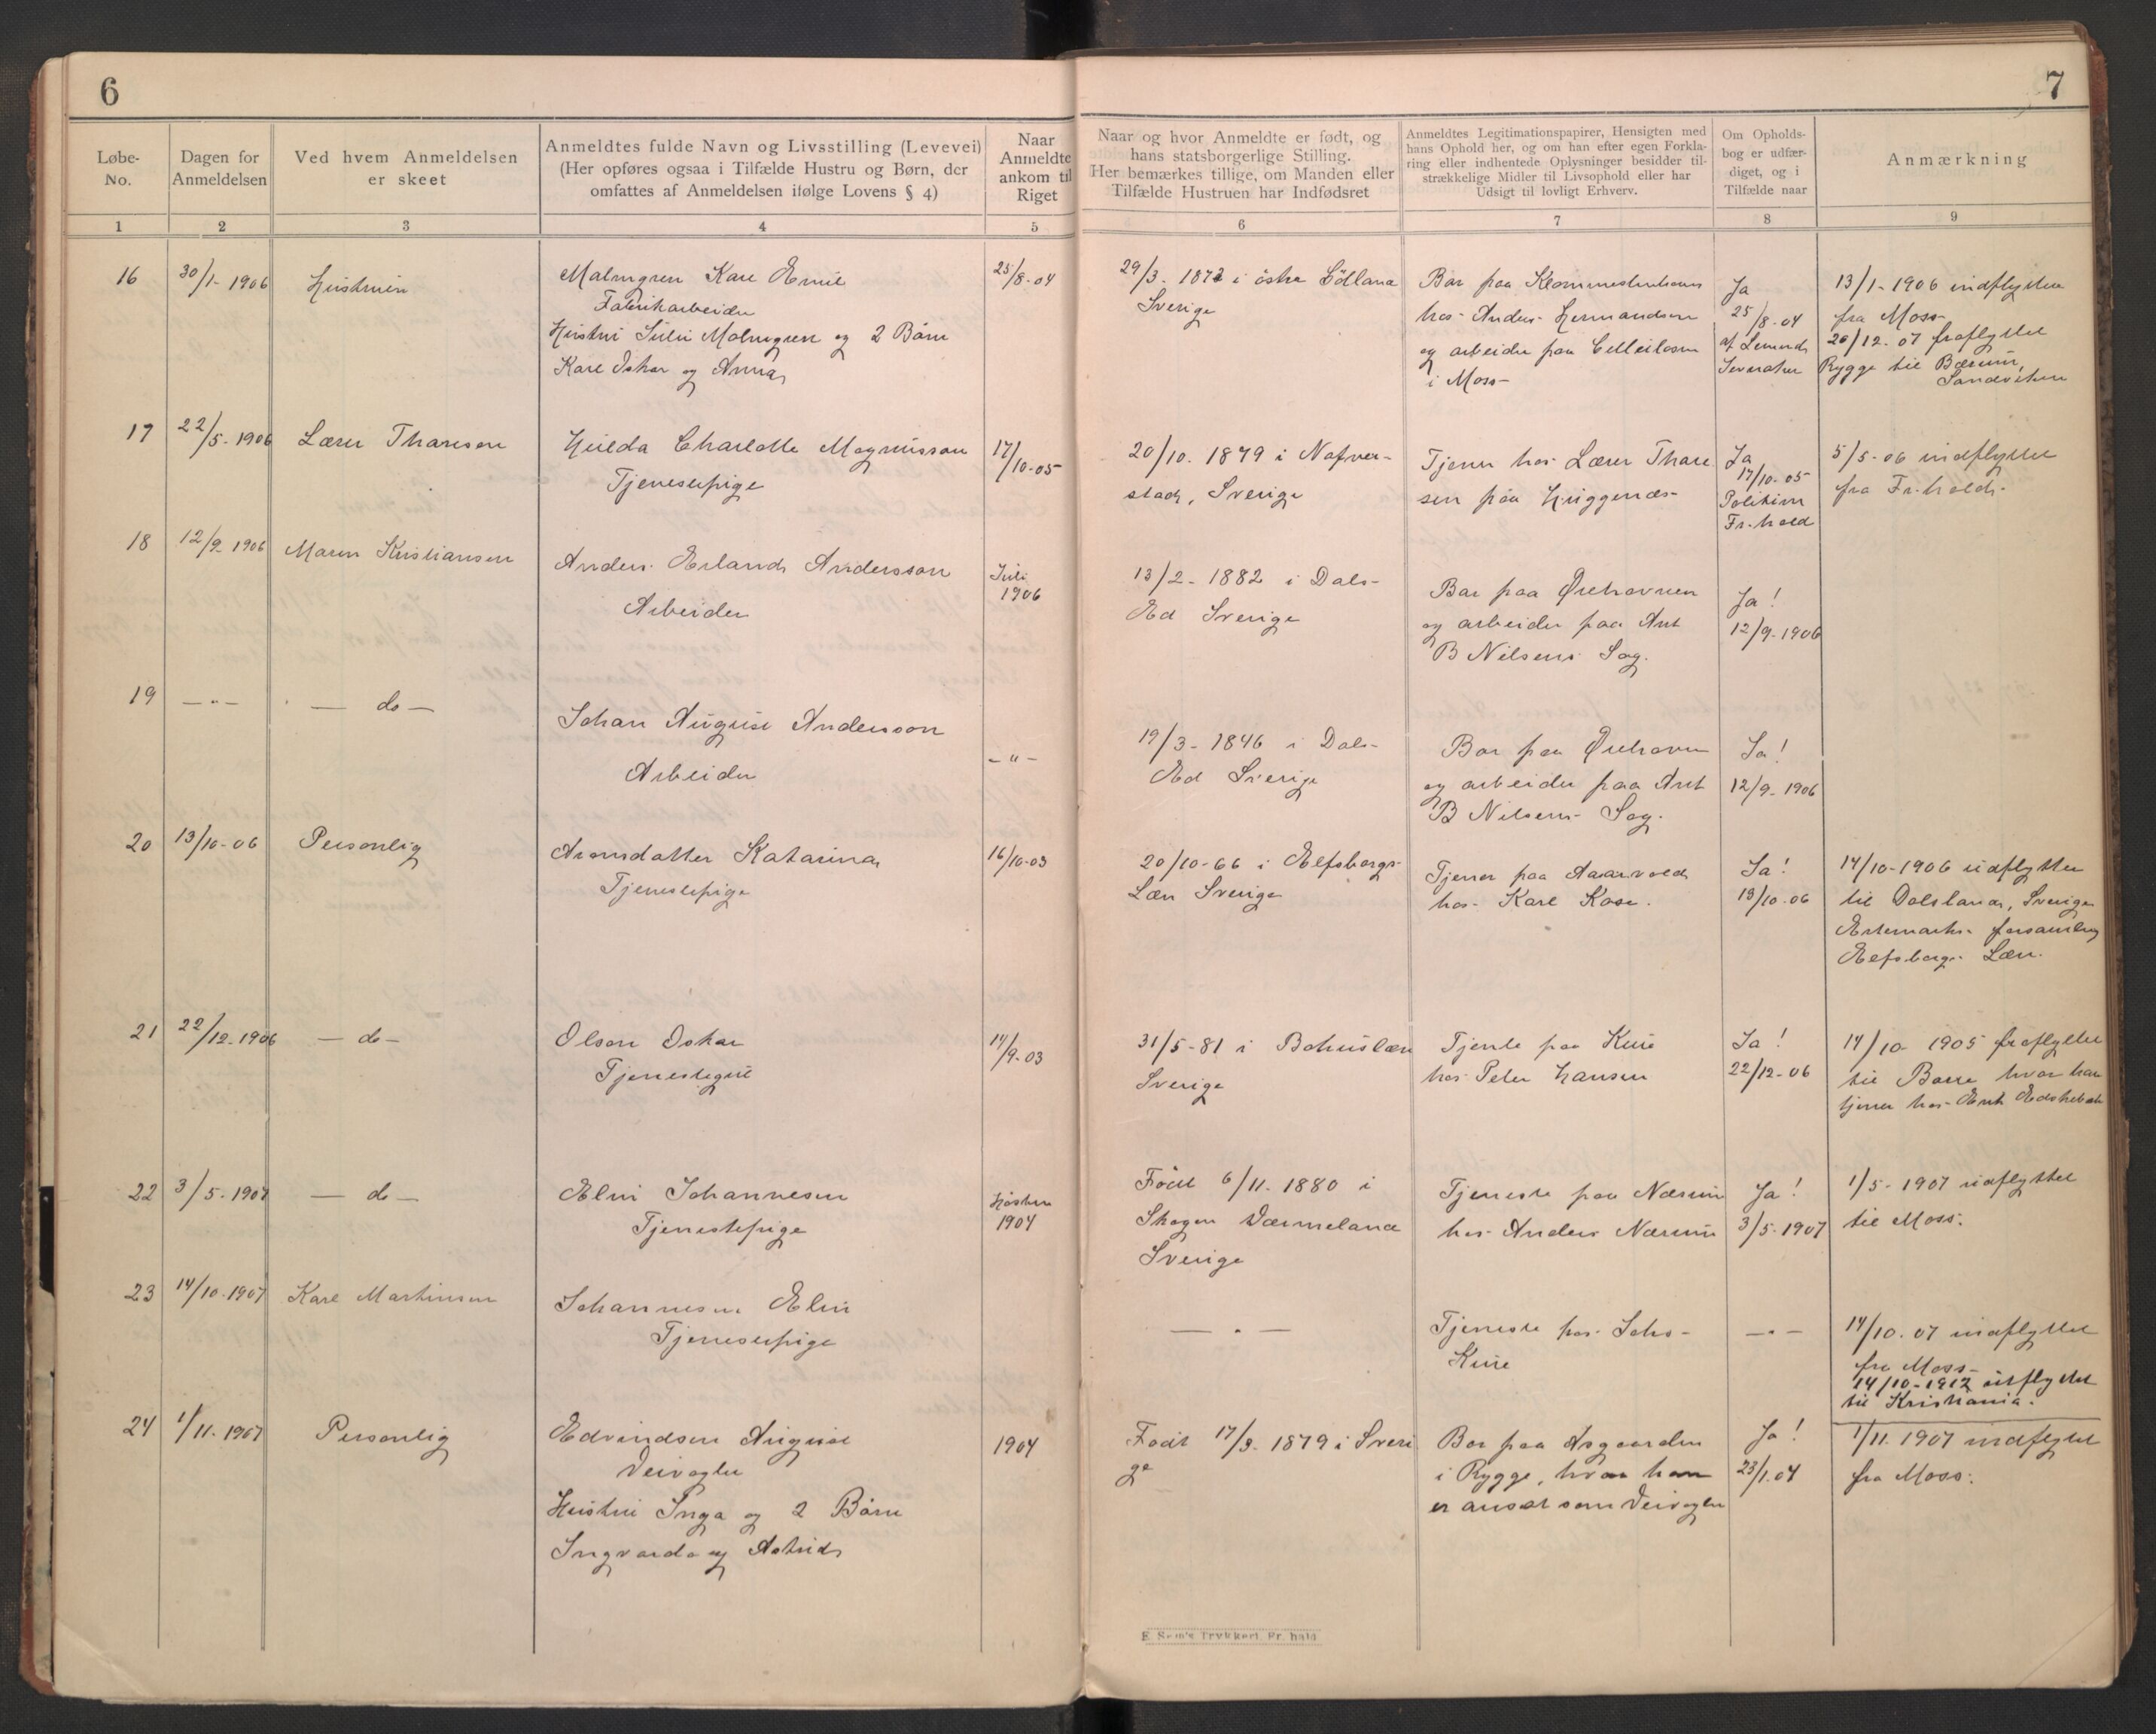 6
7
Løbe-
No.
Dagen for
Anmeldelsen
Ved hvem Anmeldelsen
er skeet
Anmeldtes fulde Navn og Livsstilling (Levevei)
(Her opføres ogsaa i Tilfælde Hustru og Børn, der
omfattes af Anmeldelsen ifølge Lovens § 4)
Naar
Anmeldte
ankom til
Riget
Naar og hvor Anmeldte er født, og
hans statsborgerlige Stilling.
Her bemærkes tillige, om Manden eller
Tilfælde Hustruen har Indfødsret
Anmeldtes Legitimationspapirer, Hensigten med
hans Ophold her, og om han efter egen Forkla-
ring eller indhentede Oplysninger besidder til-
strækkelige Midler til Livsophold eller har
Udsigt til lovligt Erhverv.
Om Opholds-
bog er udfær-
diget, og i
Tilfælde naar
Anmærkning
1 2 3 4 5 6 7 8 9
16
30/1-1906
Hustruen
Malmgren Karl Emil
Fabrikarbeider
Hustru Juli Malmgren og 2 Børn
Karl Oskar og Anna
25/8-04
29/3-1872 i östra
Sverige
Bor paa
hos Anders Hermandsen
og arbeider paa
i Moss
Ja
25/8-04
af
13/1-1906 indflyttet
fra Moss
26/12-07 fraflyttet
Rygge til Bærum,
Sandviken
17
22/5-1906
Lærer Tharesen
Hilda Charlotte Magnusson
Tjenestepige
17/10-05
20/10-1879 i Nafver-
stad, Sverige
Tjener hos Lærer Thare
sen paa Huggenæs
Ja
17/10-05
Politiken
Fr.hald
5/5-06 indflyttet
fra Fr.hald
18
12/9-1906
Maren Kristiansen
Anders Erland Andersson
Arbeider
Juli
1906
13/2-1882 i Dals-
Ed Sverige
Bor paa Ørehavnen
og arbeider paa Ant
B Nilsens Sag.
Ja!
12/9-1906
19
— " —
— do —
Johan August Andersson
Arbeider
- " -
19/3-1846 i Dals-
Ed Sverige
Bor paa Ørehavn
og arbeider paa Ant
B Nilsens Sag.
Ja!
12/9-1906
20
13/10-06
Personlig
Aronsdatter Katarina
Tjenestepige
16/10-03
20/10-66 i Elfsborgs
Læn Sverige
Tjener paa Aaarvold
hos Karl Kase.
Ja!
13/10-06
14/10-1906 udflyttet
til Dalsland, Sverige
forsamling
Elfsborgs Læn.
21
22/12-1906
— do —
Olsen Oskar
Tjenestegut
14/9-03
31/5-81 i Bohuslæn
Sverige
Tjente paa Kure
hos Peter Hansen
Ja!
22/12-06
14/10 1905 fraflyttet
til Borre hvor han
tjener hos
22
3/5-1907
— do —
Elin Johannesen
Tjenestepige
Høsten
1904
Født 6/11-1880 i
Skogen Værmeland
Sverige
Tjeneste paa Nærum
hos Anders Nærum
Ja!
3/5-1907
1/5-1907 udflyttet
til Moss.
23
14/10-1907
Karl Martinsen
Johannesen Elin
Tjenestepige
— " —
Tjeneste hos Johs
Kure
— " —
14/10-07 indflyttet
fra Moss
14/10-1912 utflyttet
til Kristiania.
24
1/11-1907
Personlig
Edvindsen August
Veivogter
Hustru Inga og 2 Børn
Ingvarda og Astrid
1904
Født 17/9-1879 i Sveri
ge
Bor paa Asgaarden
i Rygge, hvor han
er ansat som Veivogter
Ja!
23/1-04
1/11-1907 indflyttet
fra Moss.
E. Sem's Trykkeri. Fr. hald